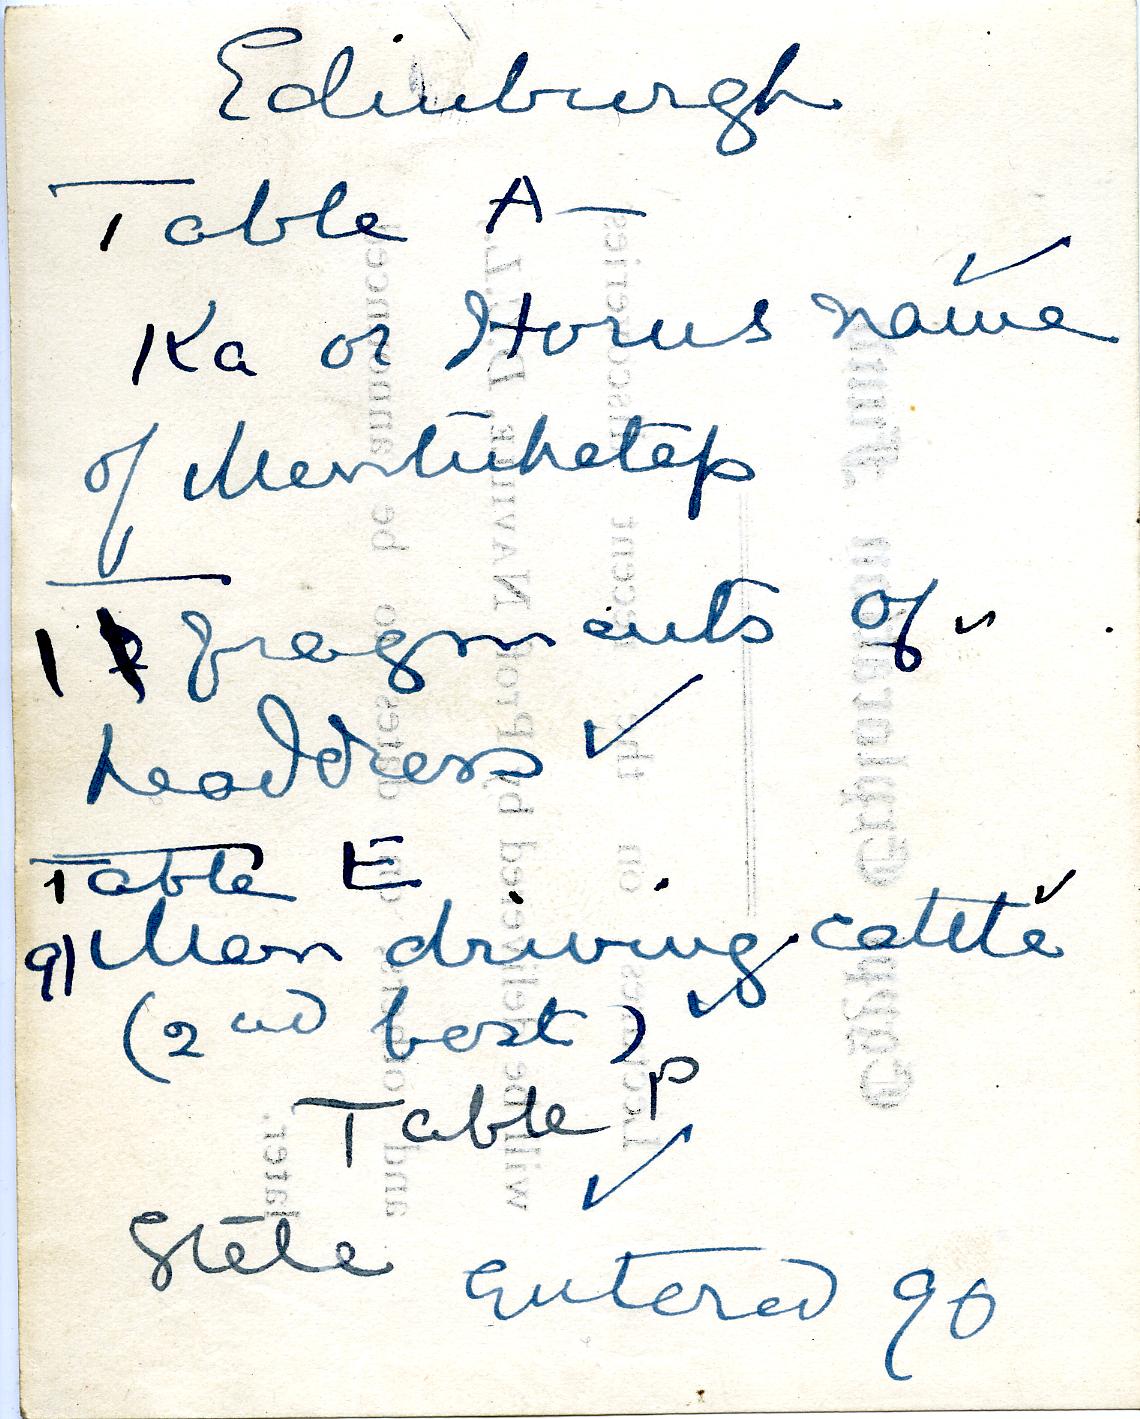 Edinburgh
Table A —
Ka or Horus name ✓
of Mentuhetep
11 fragments of ✓
headdress ✓
Table E
91 Man driving cattle ✓
(2nd best) ✓
Table P
✓
Stele
entered 90